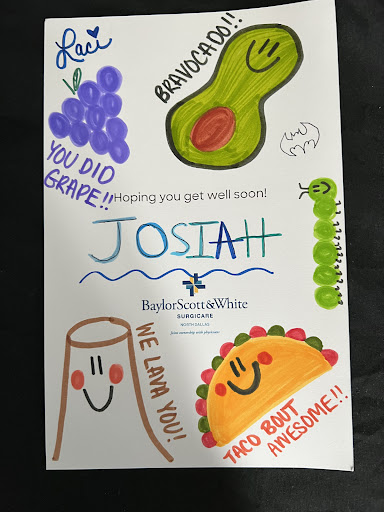 Laci
BRAVOCADO!!
YOU DID
GRAPE!!
Hoping you get well soon!
JOSIAH
BaylorScott&White
SURGICARE
NORTH DALLAS
Joint ownership with physicians
WE LAVA YOU!
TACO BOUT
AWESOME!!